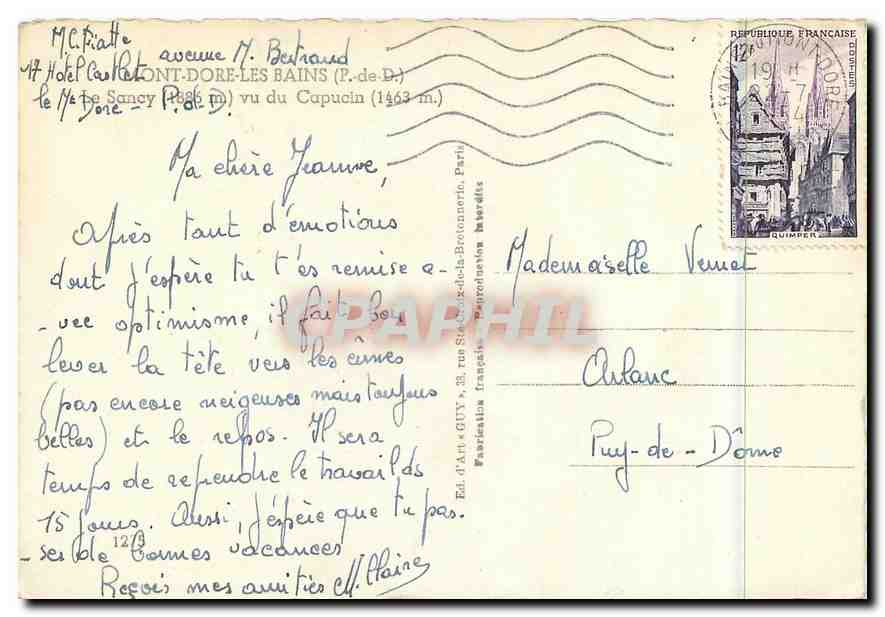 M.C. Fiatte
avenue M. Bertrand
17 Hôtel Castlet
MONT-DORE-LES BAINS (P.-de-D.)
Le Sancy (1886 m.) vu du Capucin (1463 m.)
le Mt Dore - P.-d-D.
Ma chère Jeanne,
Après tant d'émotions
dont j'espère tu t'es remise a-
-vec optimisme, il fait bon
lever la tête vers les cîmes
(pas encore neigeuses mais toujours
belles) et le repos. Il sera
temps de reprendre le travail ds
15 jours. Aussi, j'espère que tu pas-
-ses de bonnes vacances
1275
Reçois mes amitiés M. Claire
Ed. d'Art « GUY », 33, rue Ste-Croix-de-la-Bretonnerie, Paris
Fabrication française - Reproduction interdite
REPUBLIQUE FRANÇAISE
12F
POSTES
QUIMPER
MONT-DORE
19 H
Mademoiselle Vernet
Arlanc
Puy-de-Dôme
CPAPHIL